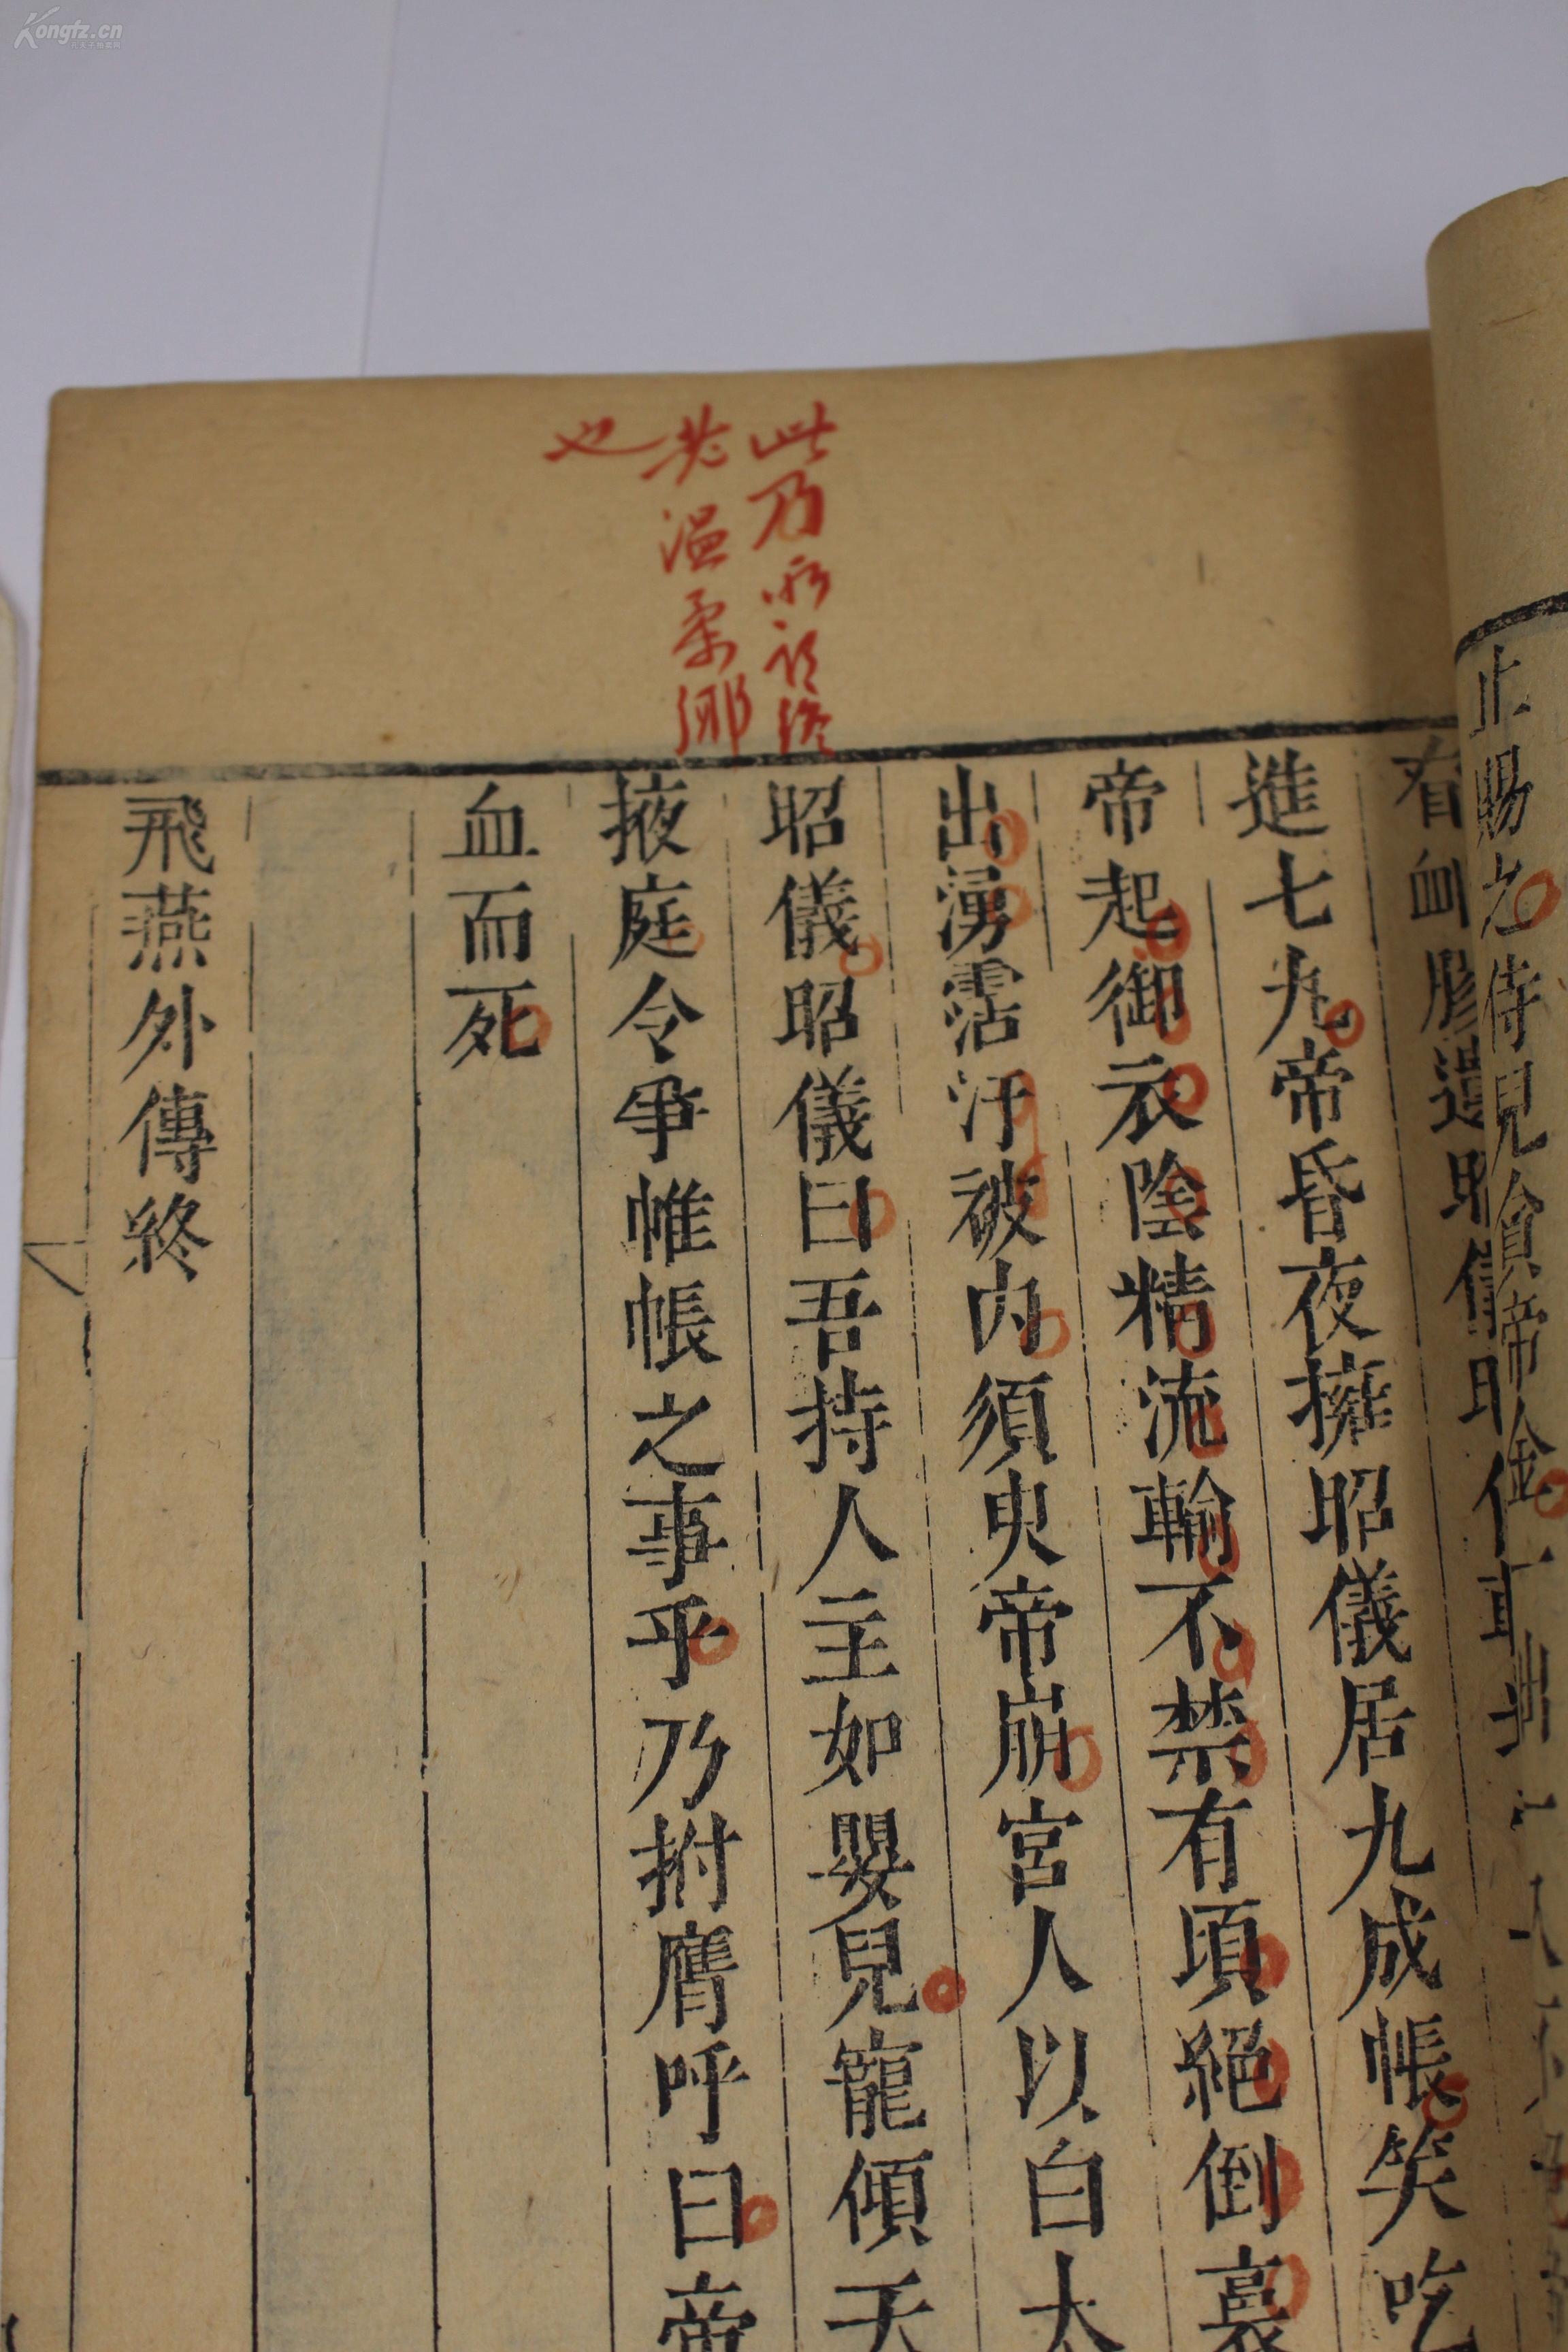 Kongfz.cn
此乃所謂終
老温柔鄉
也
止賜之侍兒貪帝金
進七丸帝昏夜擁昭儀居九成帳笑吃
帝起御衣陰精流輸不禁有頃絕倒裛
出湧霑汙被內須臾帝崩宮人以白太
昭儀昭儀曰吾持人主如嬰兒寵傾天
掖庭令爭帷帳之事乎乃拊膺呼曰帝
血而死
飛燕外傳終